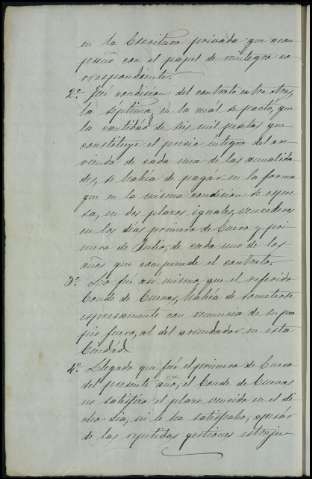 en la Escritura privada que acom-
paño con el papel de reintegro co-
rrespondiente.
2º Fué condicion del contrato entre otras,
la séptima, en la cual se pactó, que
la cantidad de seis mil pesetas que
constituye el precio integro del arri-
endo de cada una de las anualida-
des, se había de pagar en la forma
que en la misma condicion se expre-
sa, en dos plazos iguales, vencederos
en los dias primero de Enero y pri-
mero de Julio, de cada uno de los
años que comprende el contrato.
3º Lo fué asi mismo, que el referido
Conde de Cuevas, habia de someterse
espresamente con renuncia de su pro-
pio fuero, al del arrendador en esta
Ciudad.
4º Llegado que fué el primero de Enero
del presente año, el Conde de Cuevas
no satisfizo el plazo vencido en el di-
cho dia, ni lo ha satisfecho, apesar
de las repetidas gestiones estraju-